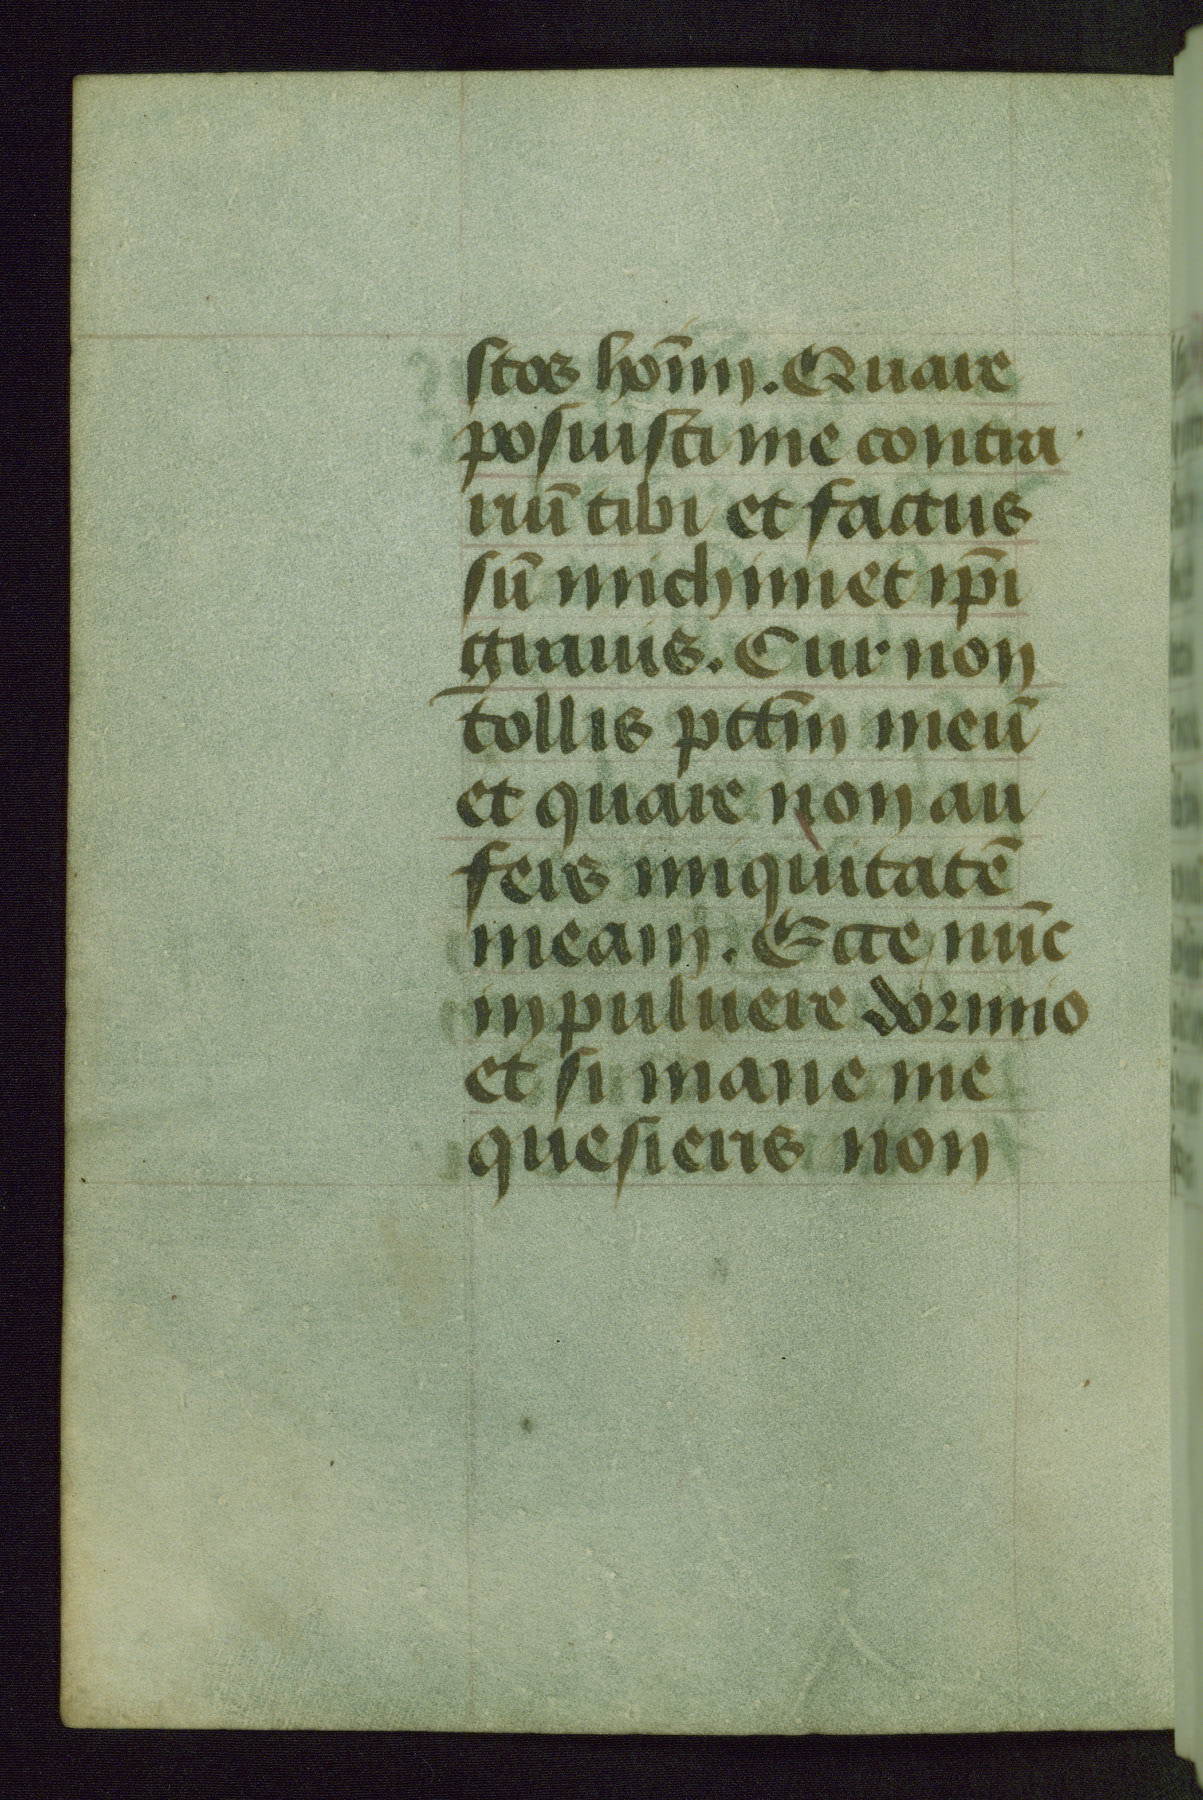 stos hoīm. Quare
posuisti me contra
riū tibi et factus
sū michimet ip̄i
grauis. Cur non
tollis pctm̄ meū
et quare non au
fers iniquitatē
meam. Ecce nūc
in puluere dormio
et si mane me
quesieris non